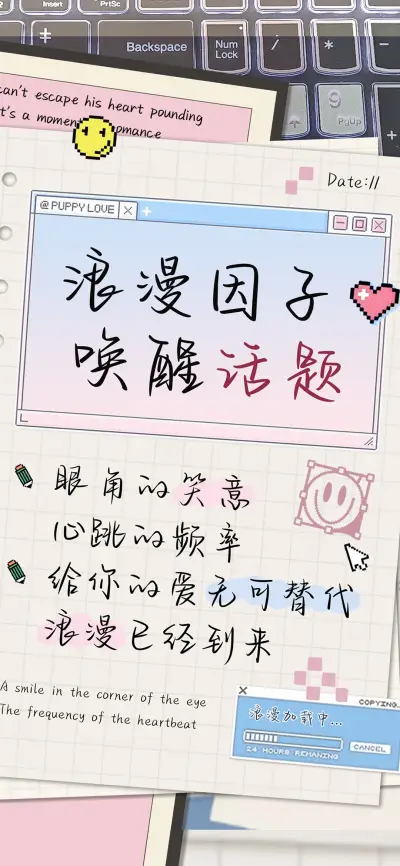 Insert
PrtSc
Backspace
Num
Lock
/
*
-
9
PgUp
+
can't escape his heart pounding
t's a moment romance
Date://
@PUPPYLOVE
浪漫因子
唤醒话题
眼角的笑意
心跳的频率
给你的爱无可替代
浪漫已经到来
A smile in the corner of the eye
The frequency of the heartbeat
COPYING...
浪漫加载中...
24 HOURS REMANING
CANCEL